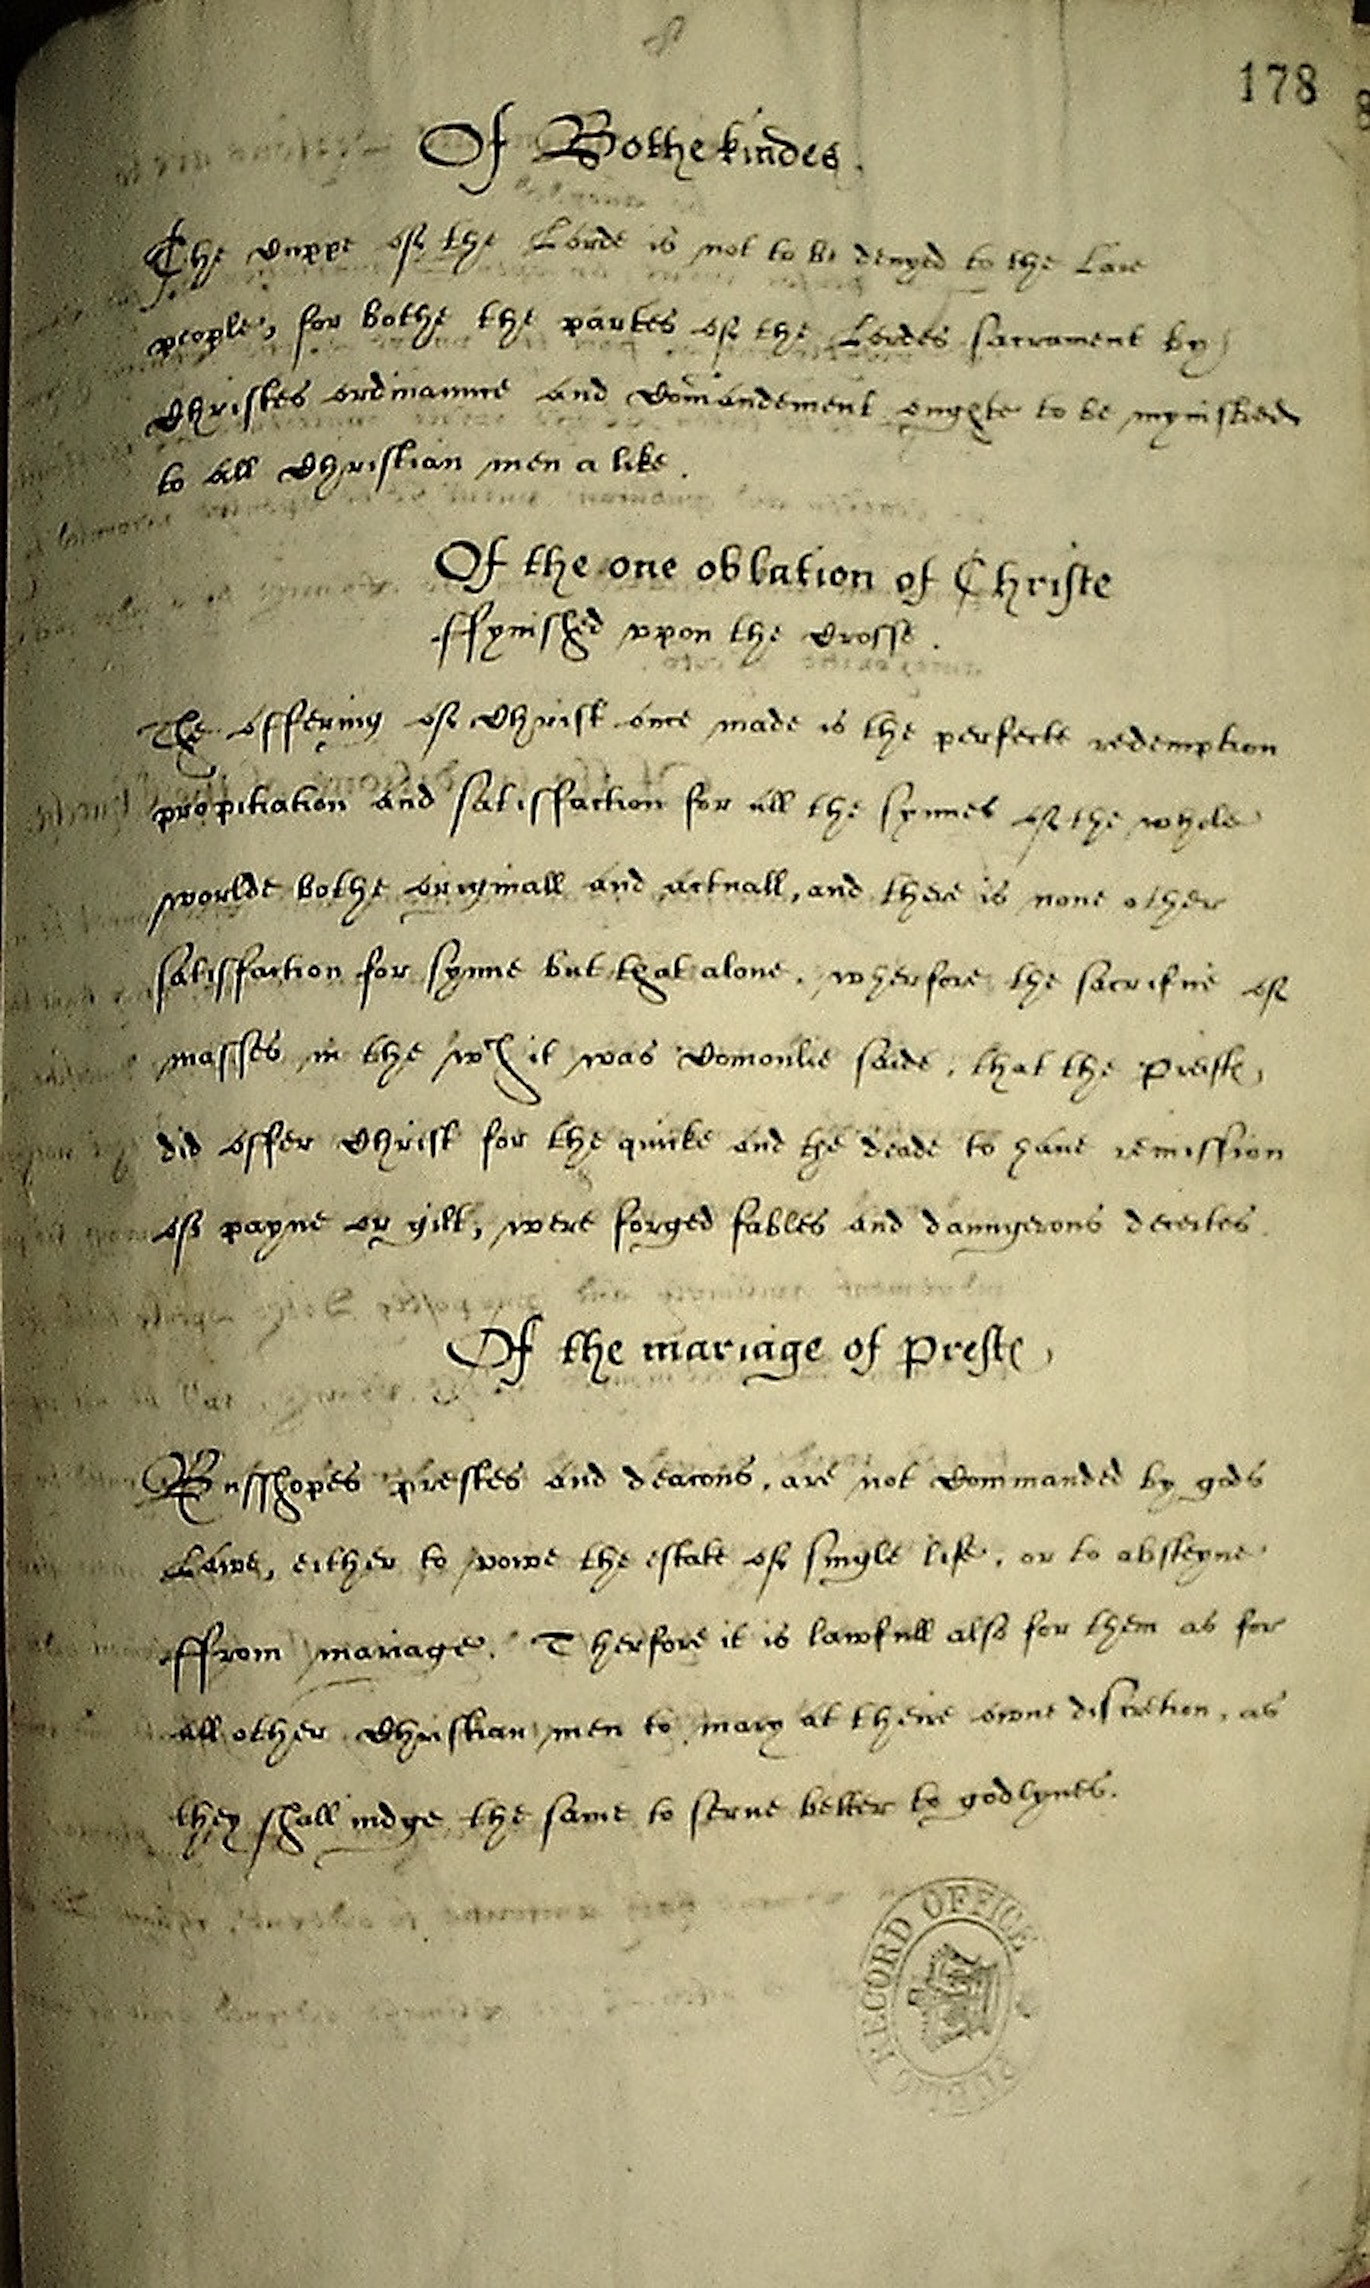 178
Of Bothe kindes.
The cuppe of the Lorde is not to be denyed to the Laie
people, for bothe the partes of the Lordes sacrament by
Christes ordinaunce and comandement oughte to be mynistred
to all Christian men a like.
Of the one oblation of Christe
ffynished vpon the crosse.
The offering of Christ once made is the perfecte redemption
propitiation and satisfaction for all the synnes of the whole
worlde bothe originall and actuall, and there is none other
satisfaction for synne but that alone. wherfore the sacrifice of
masses in the wch it was comonlie saide, that the Preistes
did offer Christ for the quicke and the deade to haue remission
of payne or gilt, were forged fables and daungerous deceites.
Of the mariage of Prestes
Busshopes prestes and deacons, are not commanded by gods
Lawe, either to vowe the estate of single life, or to absteyne
ffrom mariage. Therfore it is lawfull also for them as for
all other Christian men to mary at theire owne discretion, as
they shall iudge the same to serue better to godlynes.
PUBLIC RECORD OFFICE